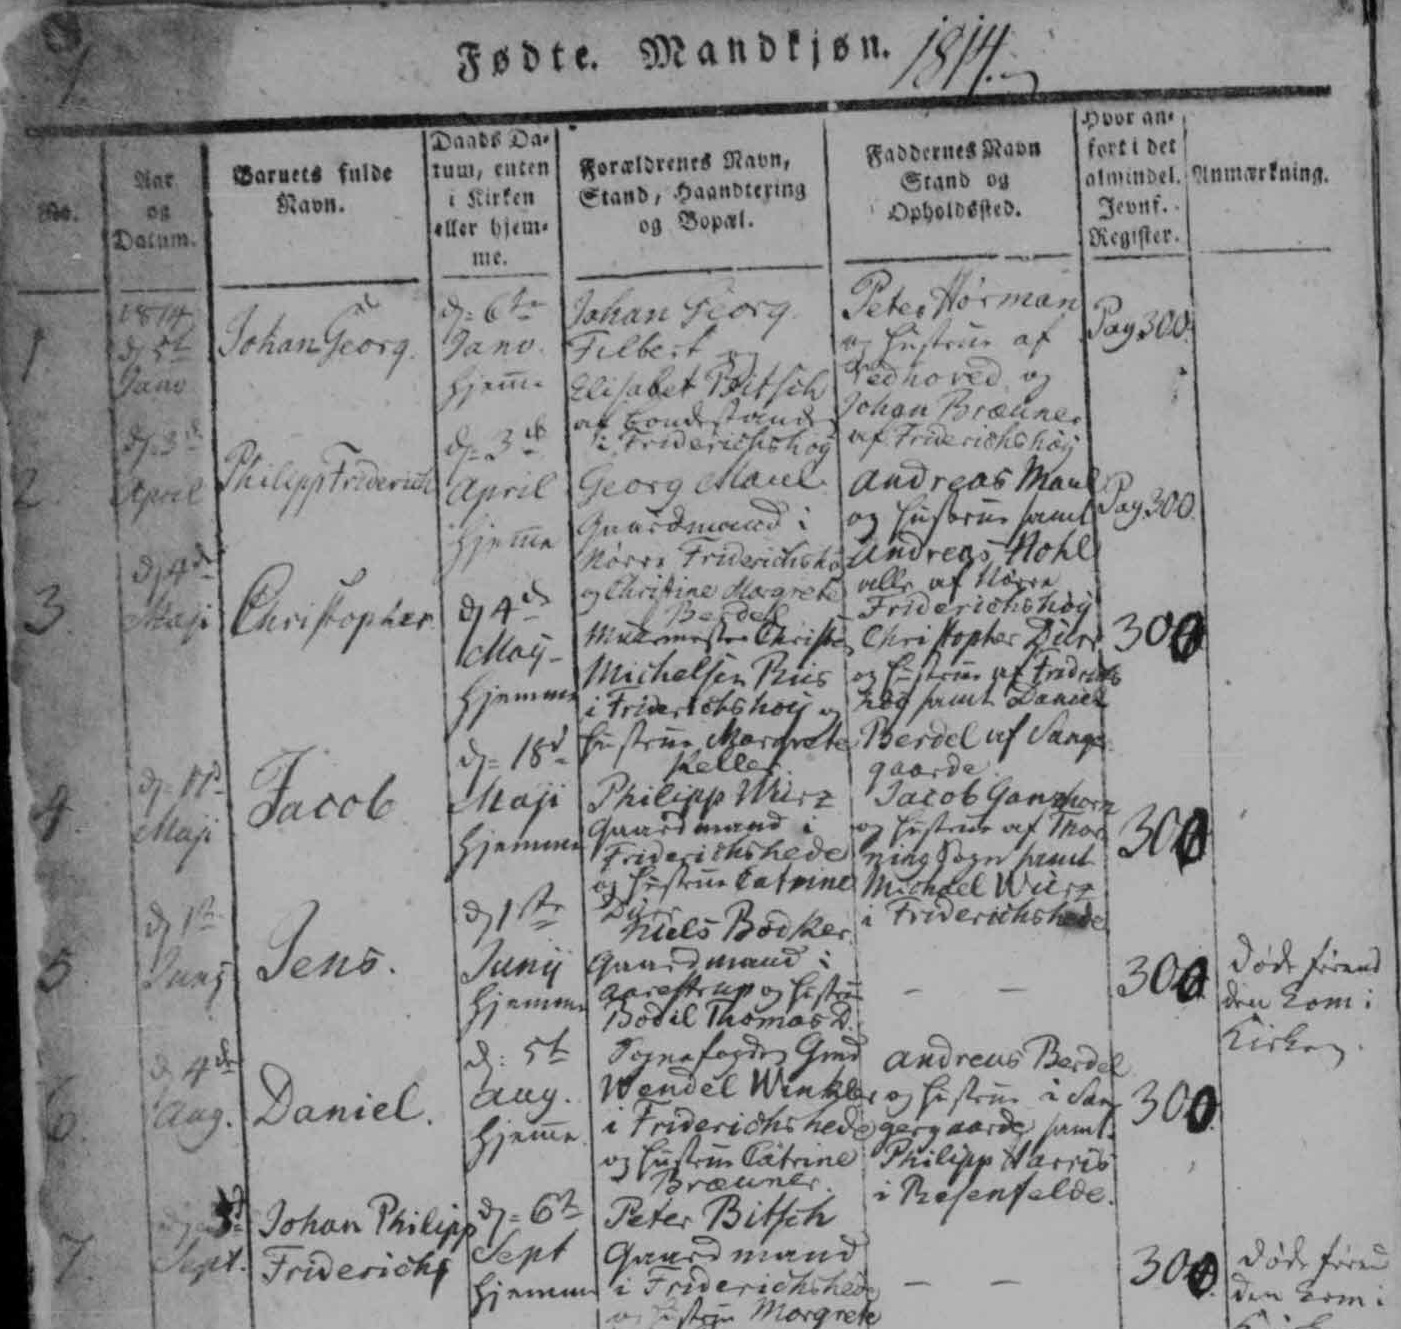 Fødte. Mandkjøn. 1814.
No.
Aar
og
Datum.
Barnets fulde
Navn.
Daabs Da-
tum, enten
i Kirken
eller hjem-
me.
Forældrenes Navn,
Stand, Haandtering
og Bopæl.
Faddernes Navn
Stand og
Opholdssted.
Hvor an-
ført i det
almindel.
Jevnf.-
Register.
Anmærkning.
1
1814
d 5t
Janv
Johan Georg.
d= 6te
Janv.
hjem̅e
Johan Georg
Filbert og
Elisabet Bitsch
af Bondestand
i Friderichshöÿ
Peter Hörman
og Hustrue af
Vedhoved og
Johan Bræuner
af Friderichshöÿ
Pag 300.
2
d= 3d
April
Philipp Friderich
d= 3d
April
hjem̅e
Georg Maul
Gaardmand i
Nörre Friderichshö
og Christine Margrete
Berdel
Andreas Maul
og Hustrue samt
Andreas Kohl
alle af Nörre
Friderichshöÿ
Pag 300.
3.
d 4de
Maji
Christopher
d 4de
Maÿ-
hjemme
Muurmester Christen
Michelsen Riis
i Friderichshöÿ og
Hustrue Margrete
Keller
Christopher Dürr
og Hustrue af Fridrichs
höÿ samt Daniel
Berdel af Sange
gaarde.
300
4.
Maji
Jacob
d= 18d
Maji
hjemme
Philipp Würz
Gaardmand i
Friderichshede
og Hustrue Catrine
Dürr
Jacob Ganzhorn
og Hustrue af Thor
ning Sogn samt
Michael Würz
i Friderichshede
300
5
d 1te
Junÿ
Jens.
d 1ste
Junÿ
hjemme
Niels Bödker
Gaardmand i
Aarestrup og Hustrue
Bodil Thomas D.
— —
300
döde förend
den kom i
Kirken.
6.
d 4de
Aug.
Daniel.
d: 5t
Aug.
hjem̅e
Sognefogden Gmd
Wendel Winkler
i Friderichshede
og Hustrue Catrine
Bræuner.
Andreas Berdel
og Hustrue i San
gergaarde samt
Philipp Harris
i Resenfelde.
300
7.
Sept.
Johan Philipp
Friderich
d= 6t
Sept
hjemme
Peter Bitsch
Gaardmand
i Friderichshede
og Hustrue Margrete
— —
300.
döde förend
den kom i